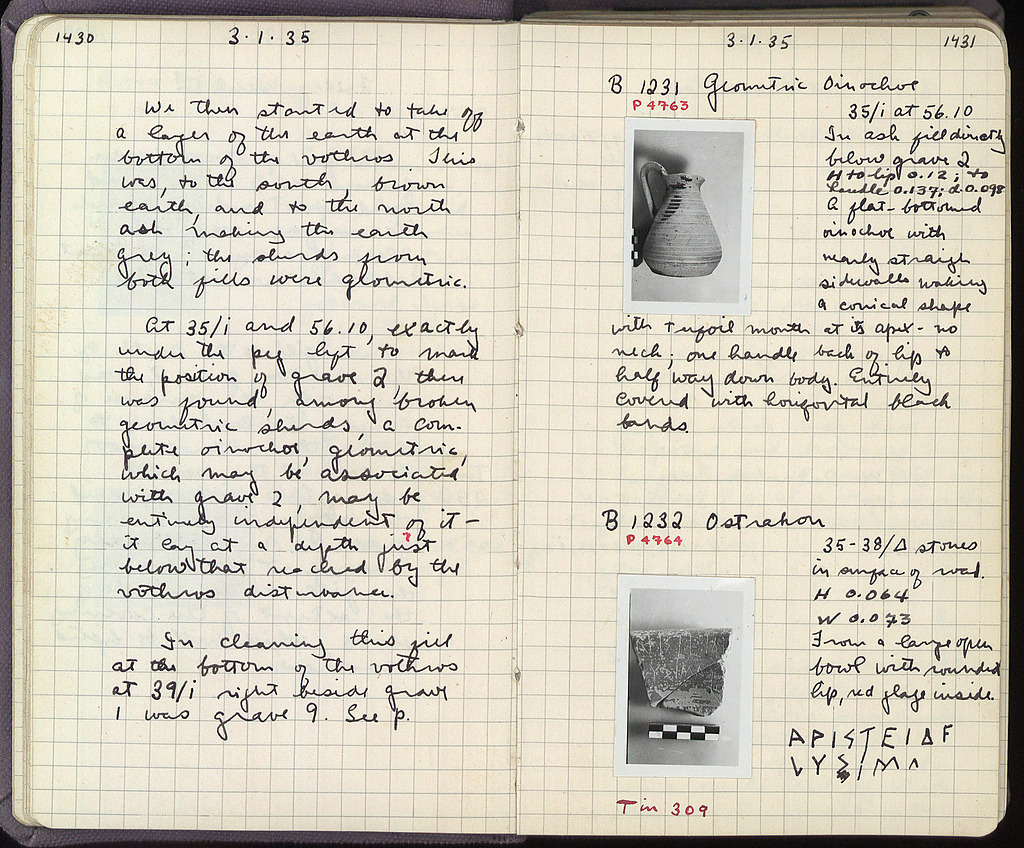 1430
3·1·35
We then started to take off
a layer of the earth at the
bottom of the vothros This
was, to the south, brown
earth, and to the north
ash making the earth
grey; the sherds from
both fills were geometric.
At 35/i and 56.10, exactly
under the peg left to mark
the position of grave 2, there
was found, among broken
geometric sherds, a com-
plete oinochoe, geometric,
which may be associated
with grave 2, may be
entirely independent of it –
it lay at a depth just
?
below that reached by the
vothros disturbance.
In cleaning this fill
at the bottom of the vothros
at 39/i right beside grave
1 was grave 9. See p.
3·1·35
1431
B 1231 Geometric Oinochoe
P 4763
35/i at 56.10
In ash fill directly
below grave 2
H to lip 0.12; to
handle 0.137; d 0.098
A flat-bottomed
oinochoe with
nearly straigh
sidewalls making
a conical shape
with trefoil mouth at its apex – no
neck; one handle back of lip to
half way down body. Entirely
covered with horizontal black
bands.
B 1232 Ostrakon
P 4764
35-38/Δ stones
in surface of road.
H 0.064
W 0.073
From a large open
bowl with rounded
lip, red glaze inside.
ΑΡΙΣΤΕΙΔF
LYΣIMA
Tin 309